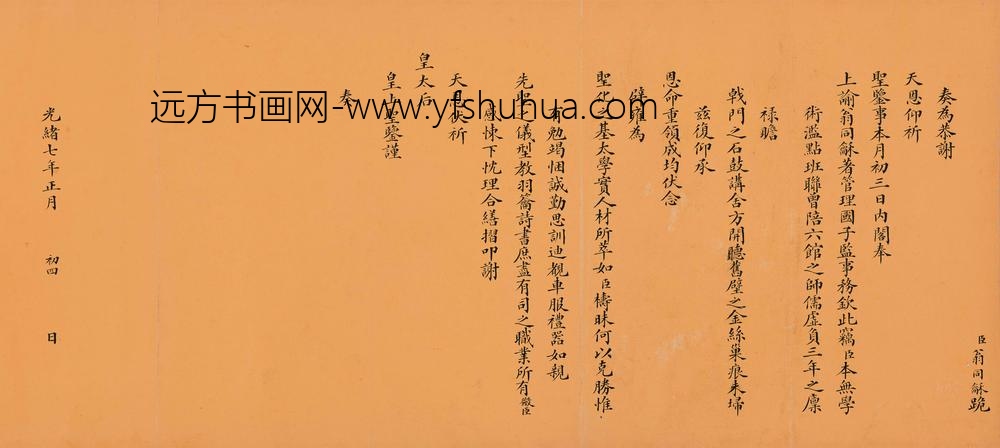 臣翁同龢跪
奏為恭謝
天恩仰祈
聖鑒事本月初三日內閣奉
上諭翁同龢著管理國子監事務欽此竊臣本無學
術濫點班聯曾陪六館之師儒虛負三年之廩
祿瞻
戟門之石鼓講舍方開聽舊壁之金絲巢痕未埽
茲復仰承
恩命重領成均伏念
辟雍為
聖化基太學實人材所萃如臣檮昧何以克勝惟
有勉竭悃誠勤思訓迪覩車服禮器如親
先聖之儀型教羽籥詩書庶盡有司之職業所有微臣
感悚下忱理合繕摺叩謝
天恩伏祈
皇太后
皇上聖鑒謹
奏
光緒七年正月 初四 日
远方书画网-www.yfshuhua.com